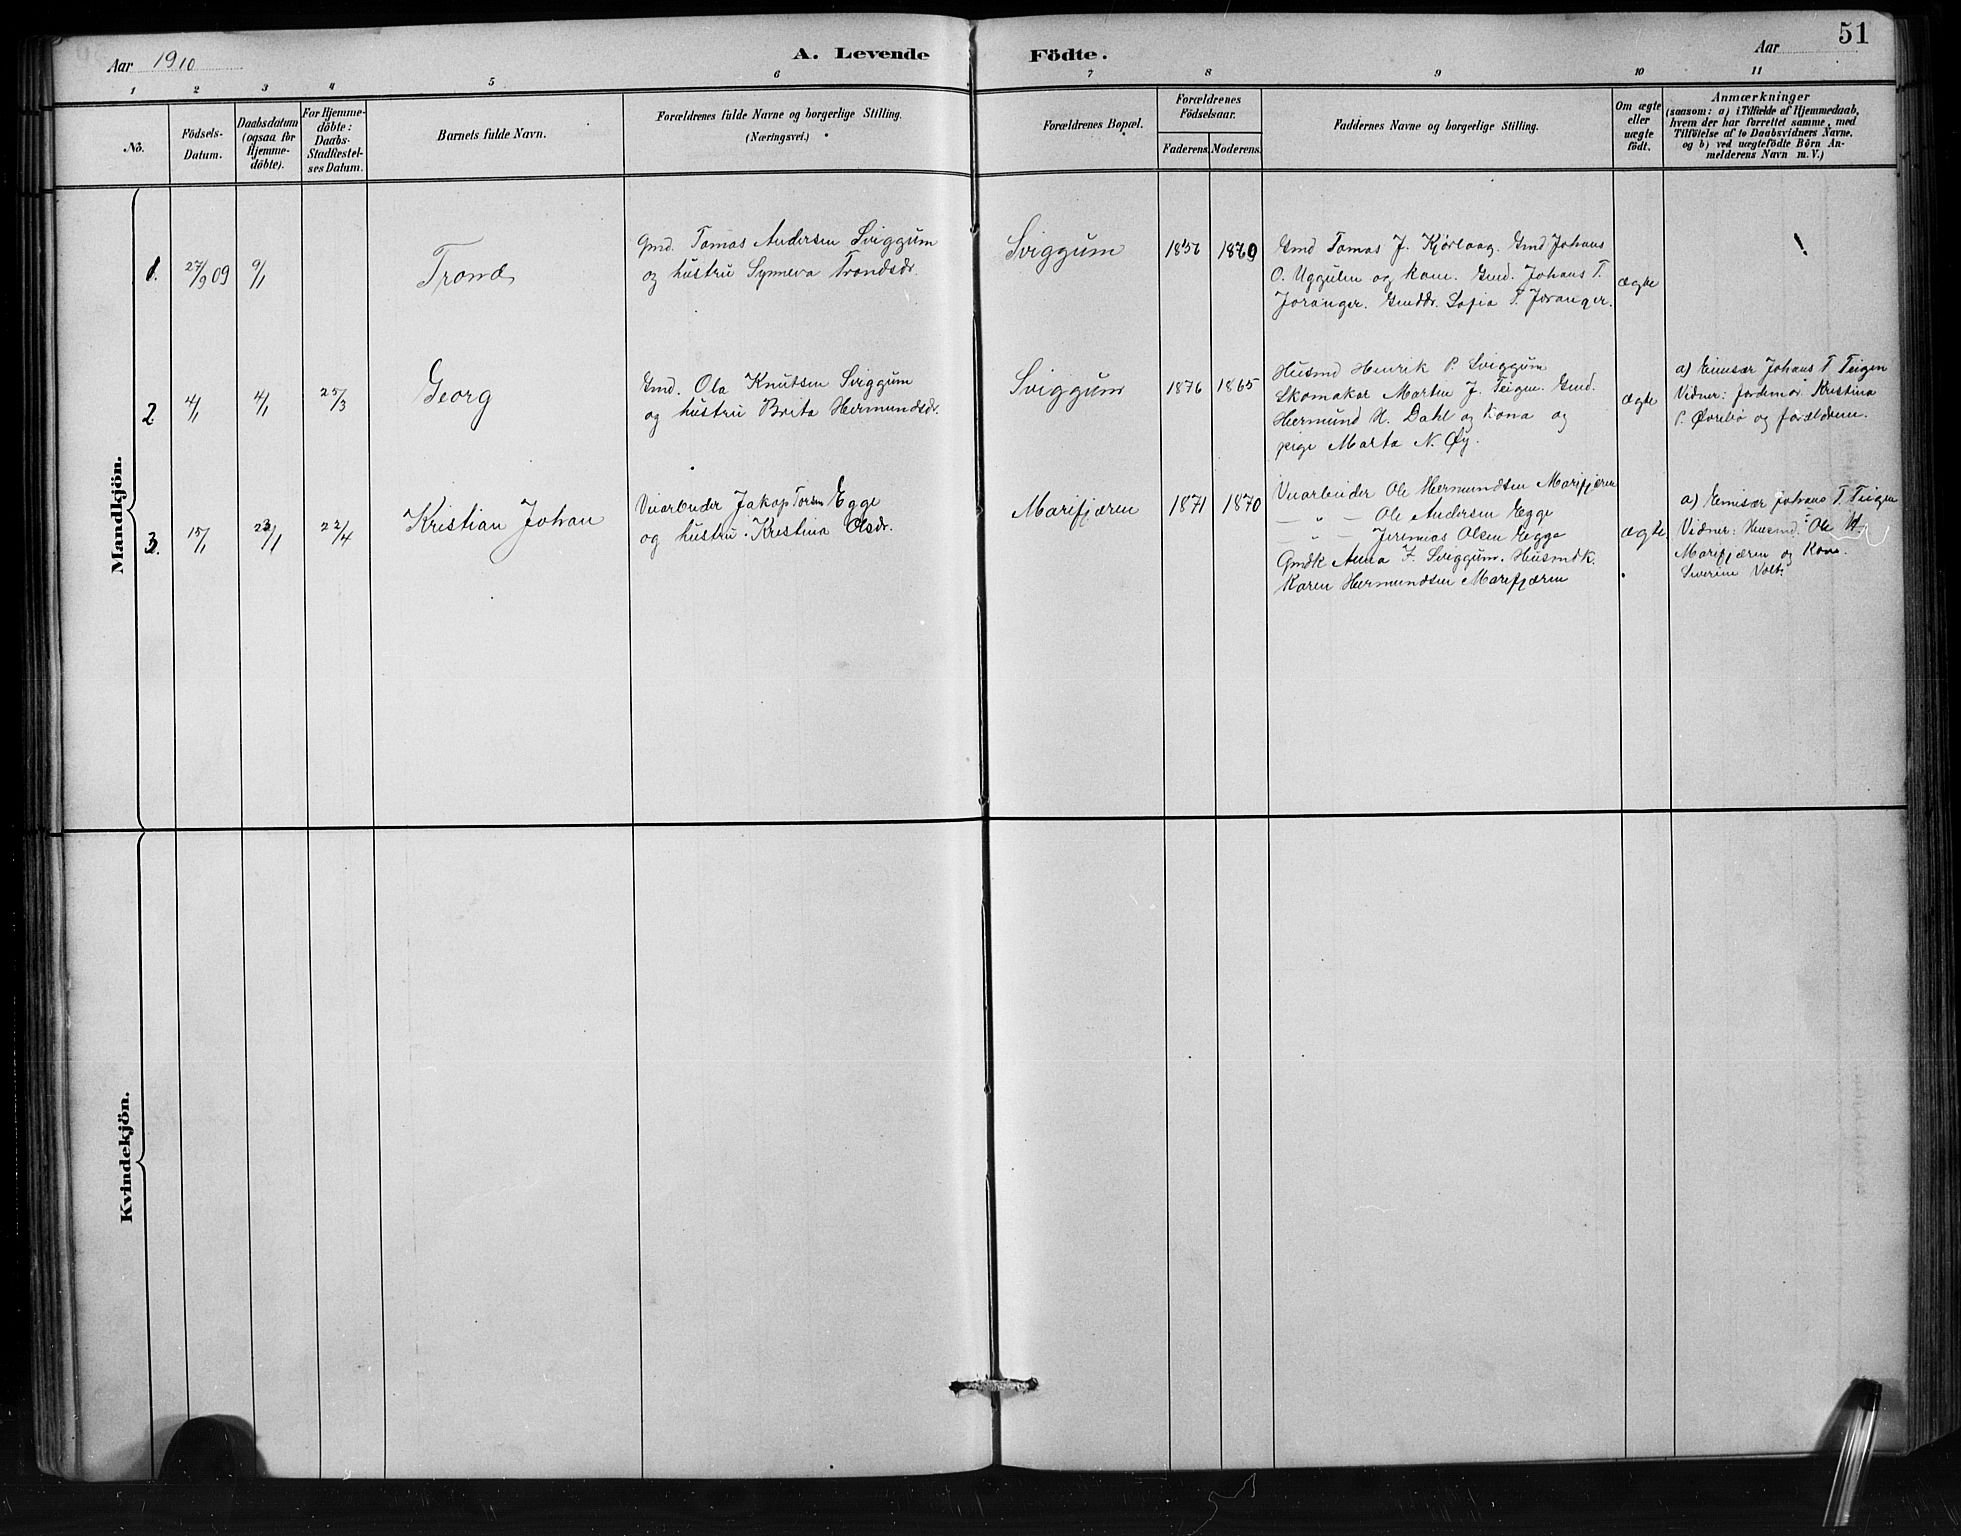 51
Aar 1910
A. Levende Födte.
Aar
1 2 3 4 5 6 7 8 9 10 11
Nô.
Födsels-
Datum.
Daabsdatum
(ogsaa for
Hjemme-
döbte).
For Hjemme-
döbte:
Daabs-
Stadfæstel-
ses Datum.
Barnets fulde Navn.
Forældrenes fulde Navne og borgerlige Stilling.
(Næringsvei.)
Forældrenes Bopæl.
Forældrenes
Födselsaar.
Faderens. Moderens.
Faddernes Navne og borgerlige Stilling.
Om ægte
eller
uægte
födt.
Anmærkninger
(saasom: a) i Tilfælde af Hjemmedaab,
hvem der har forrettet samme, med
Tilföielse af to Daabsvidners Navne.
og b) ved uægtefödte Börn An-
melderens Navn m. V.)
Mandkjön.
1. 27/9 09 9/1
Trond
Gmd. Tomas Andersen Sviggum
og hustru Synneva Trondsdr.
Sviggum
1856 1869
Gmd Tomas J. Kjørlaug. Gmd Johans
O. Uggulen og kone. Gmd. Johans T.
Joranger. Gmddr. Sofia T. Joranger.
ægte
2 4/1 4/1 25/3
Georg
Gmd. Ola Knutsen Sviggum
og hustru Brita Hermundsdr.
Sviggum
1876 1865
Husmd Henrik P. Sviggum
Skomakar Martin J. Teigen. Gmd.
Hermund H. Dahl og Kona og
pige Marta N. Øy.
ægte
a) Emisær Johans T Teigen
Vidner: jordmor Kristina
P. Øvrebø og forældrene.
3. 15/1 23/1 22/4
Kristian Johan
Veiarbeider Jakop Torsen Egge
og hustru Kristina Olsdr.
Marifjæren
1871 1870
Veiarbeider Ole Hermundsen Marifjæren
— " — Ole Andersen Egge
— " — Jeremias Olsen Egge
Gmdk Anna J. Sviggum. Husmdk.
Karen Hermundsen Marifjæren
ægte
a) Emisær Johans T Teigen
Vidner: Husmd. Ole H
Marifjæren og Kone.
Severine Volt.
Kvindekjön.